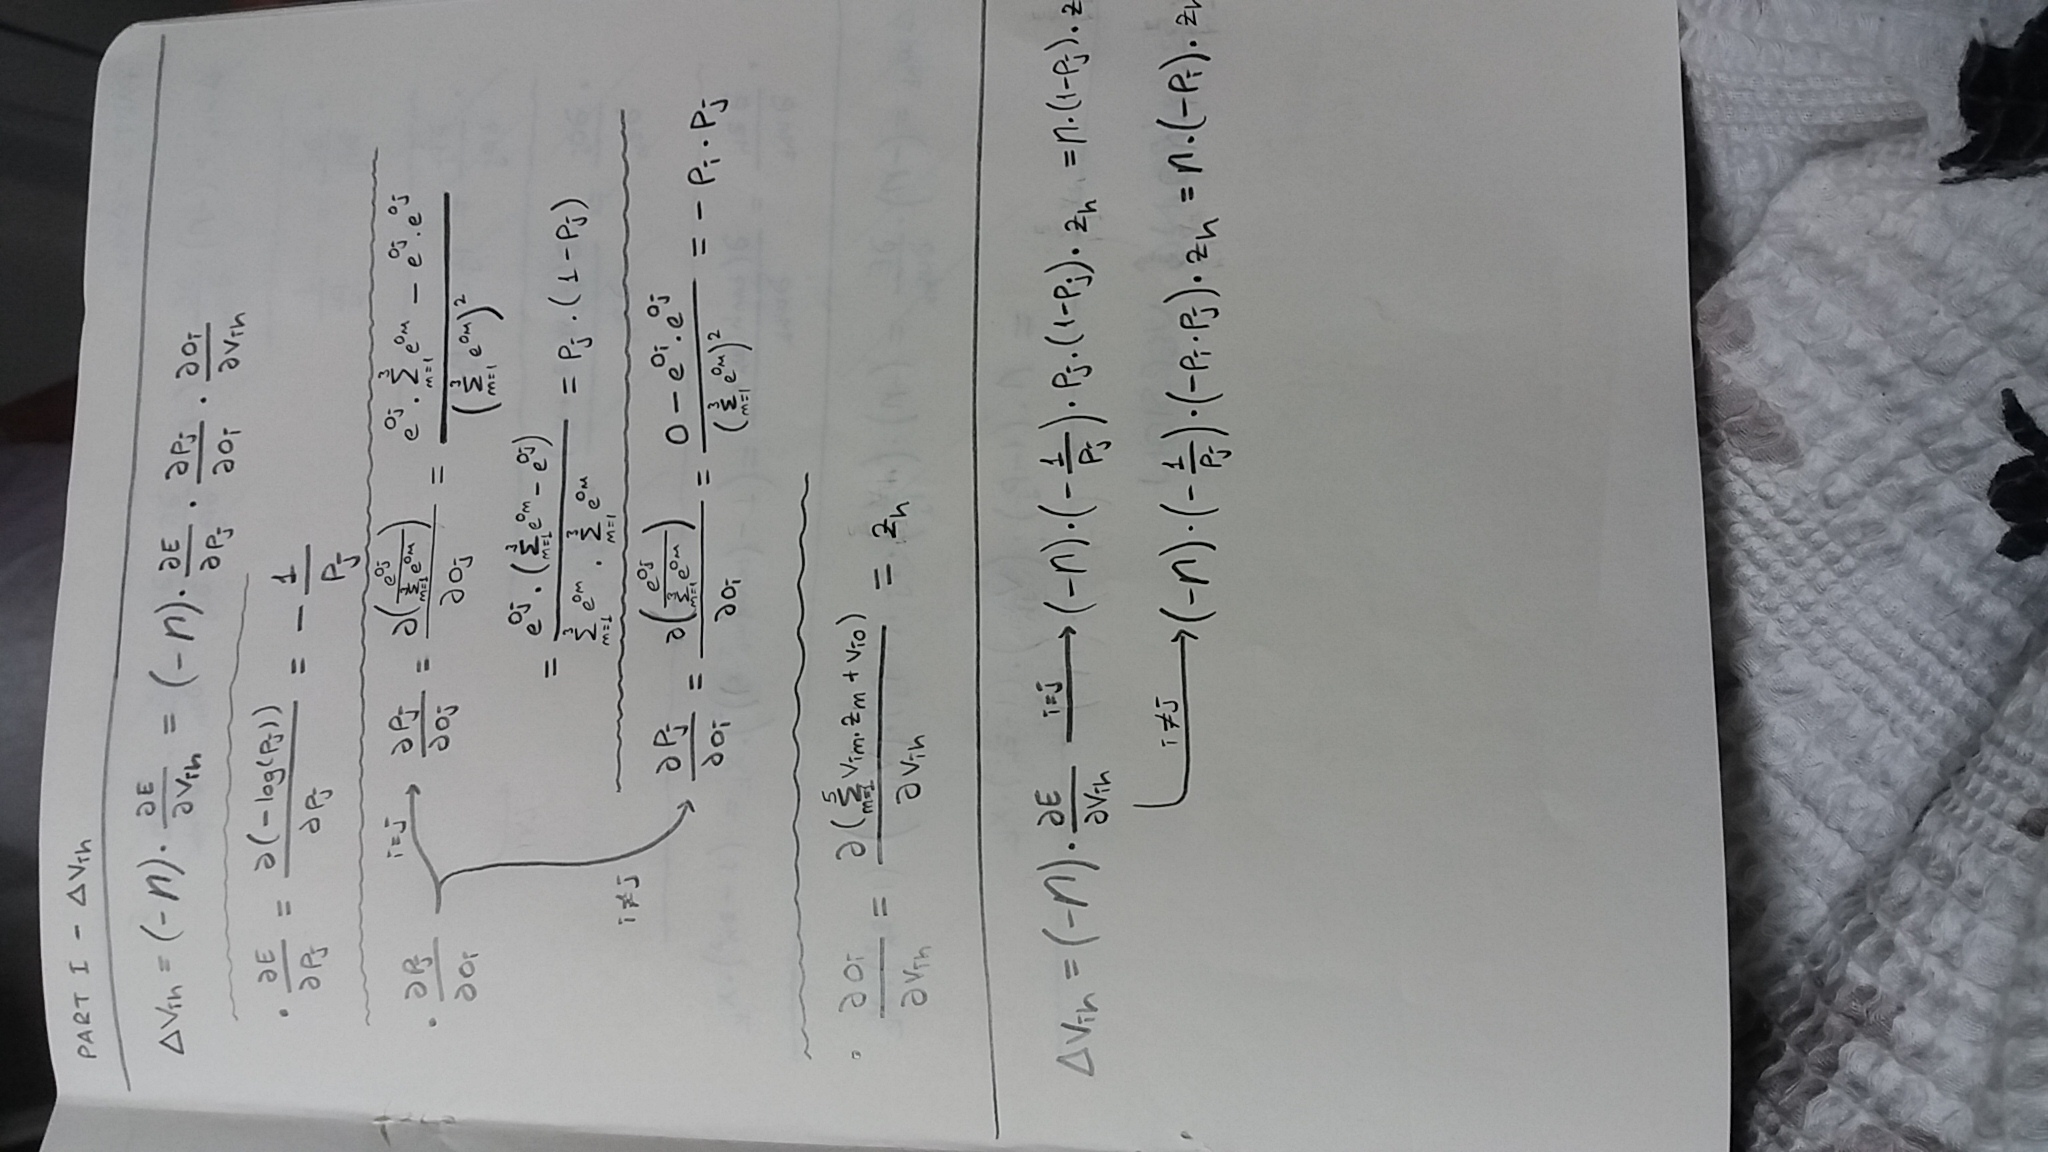 PART I - ΔVih
ΔVih = (-n) · ∂E/∂Vih = (-n) · ∂E/∂Pj · ∂Pj/∂Oi · ∂Oi/∂Vih
· ∂E/∂Pj = ∂(-log(Pj))/∂Pj = - 1/Pj
· ∂Pj/∂Oi
i=j → ∂Pj/∂Oj = ∂(e^Oj / Σ_{m=1}^{3} e^Om)/∂Oj = (e^Oj · Σ_{m=1}^{3} e^Om - e^Oj · e^Oj)/(Σ_{m=1}^{3} e^Om)^2
= e^Oj · (Σ_{m=1}^{3} e^Om - e^Oj)/(Σ_{m=1}^{3} e^Om · Σ_{m=1}^{3} e^Om) = Pj · (1-Pj)
i≠j → ∂Pj/∂Oi = ∂(e^Oj / Σ_{m=1}^{3} e^Om)/∂Oi = (0 - e^Oi · e^Oj)/(Σ_{m=1}^{3} e^Om)^2 = - Pi · Pj
· ∂Oi/∂Vih = ∂(Σ_{m=1}^{5} Vim · zm + Vi0)/∂Vih = zh
ΔVih = (-n) · ∂E/∂Vih i=j → (-n) · (- 1/Pj) · Pj · (1-Pj) · zh = n · (1-Pj) · z
i≠j → (-n) · (- 1/Pj) · (-Pi · Pj) · zh = n · (-Pi) · zh